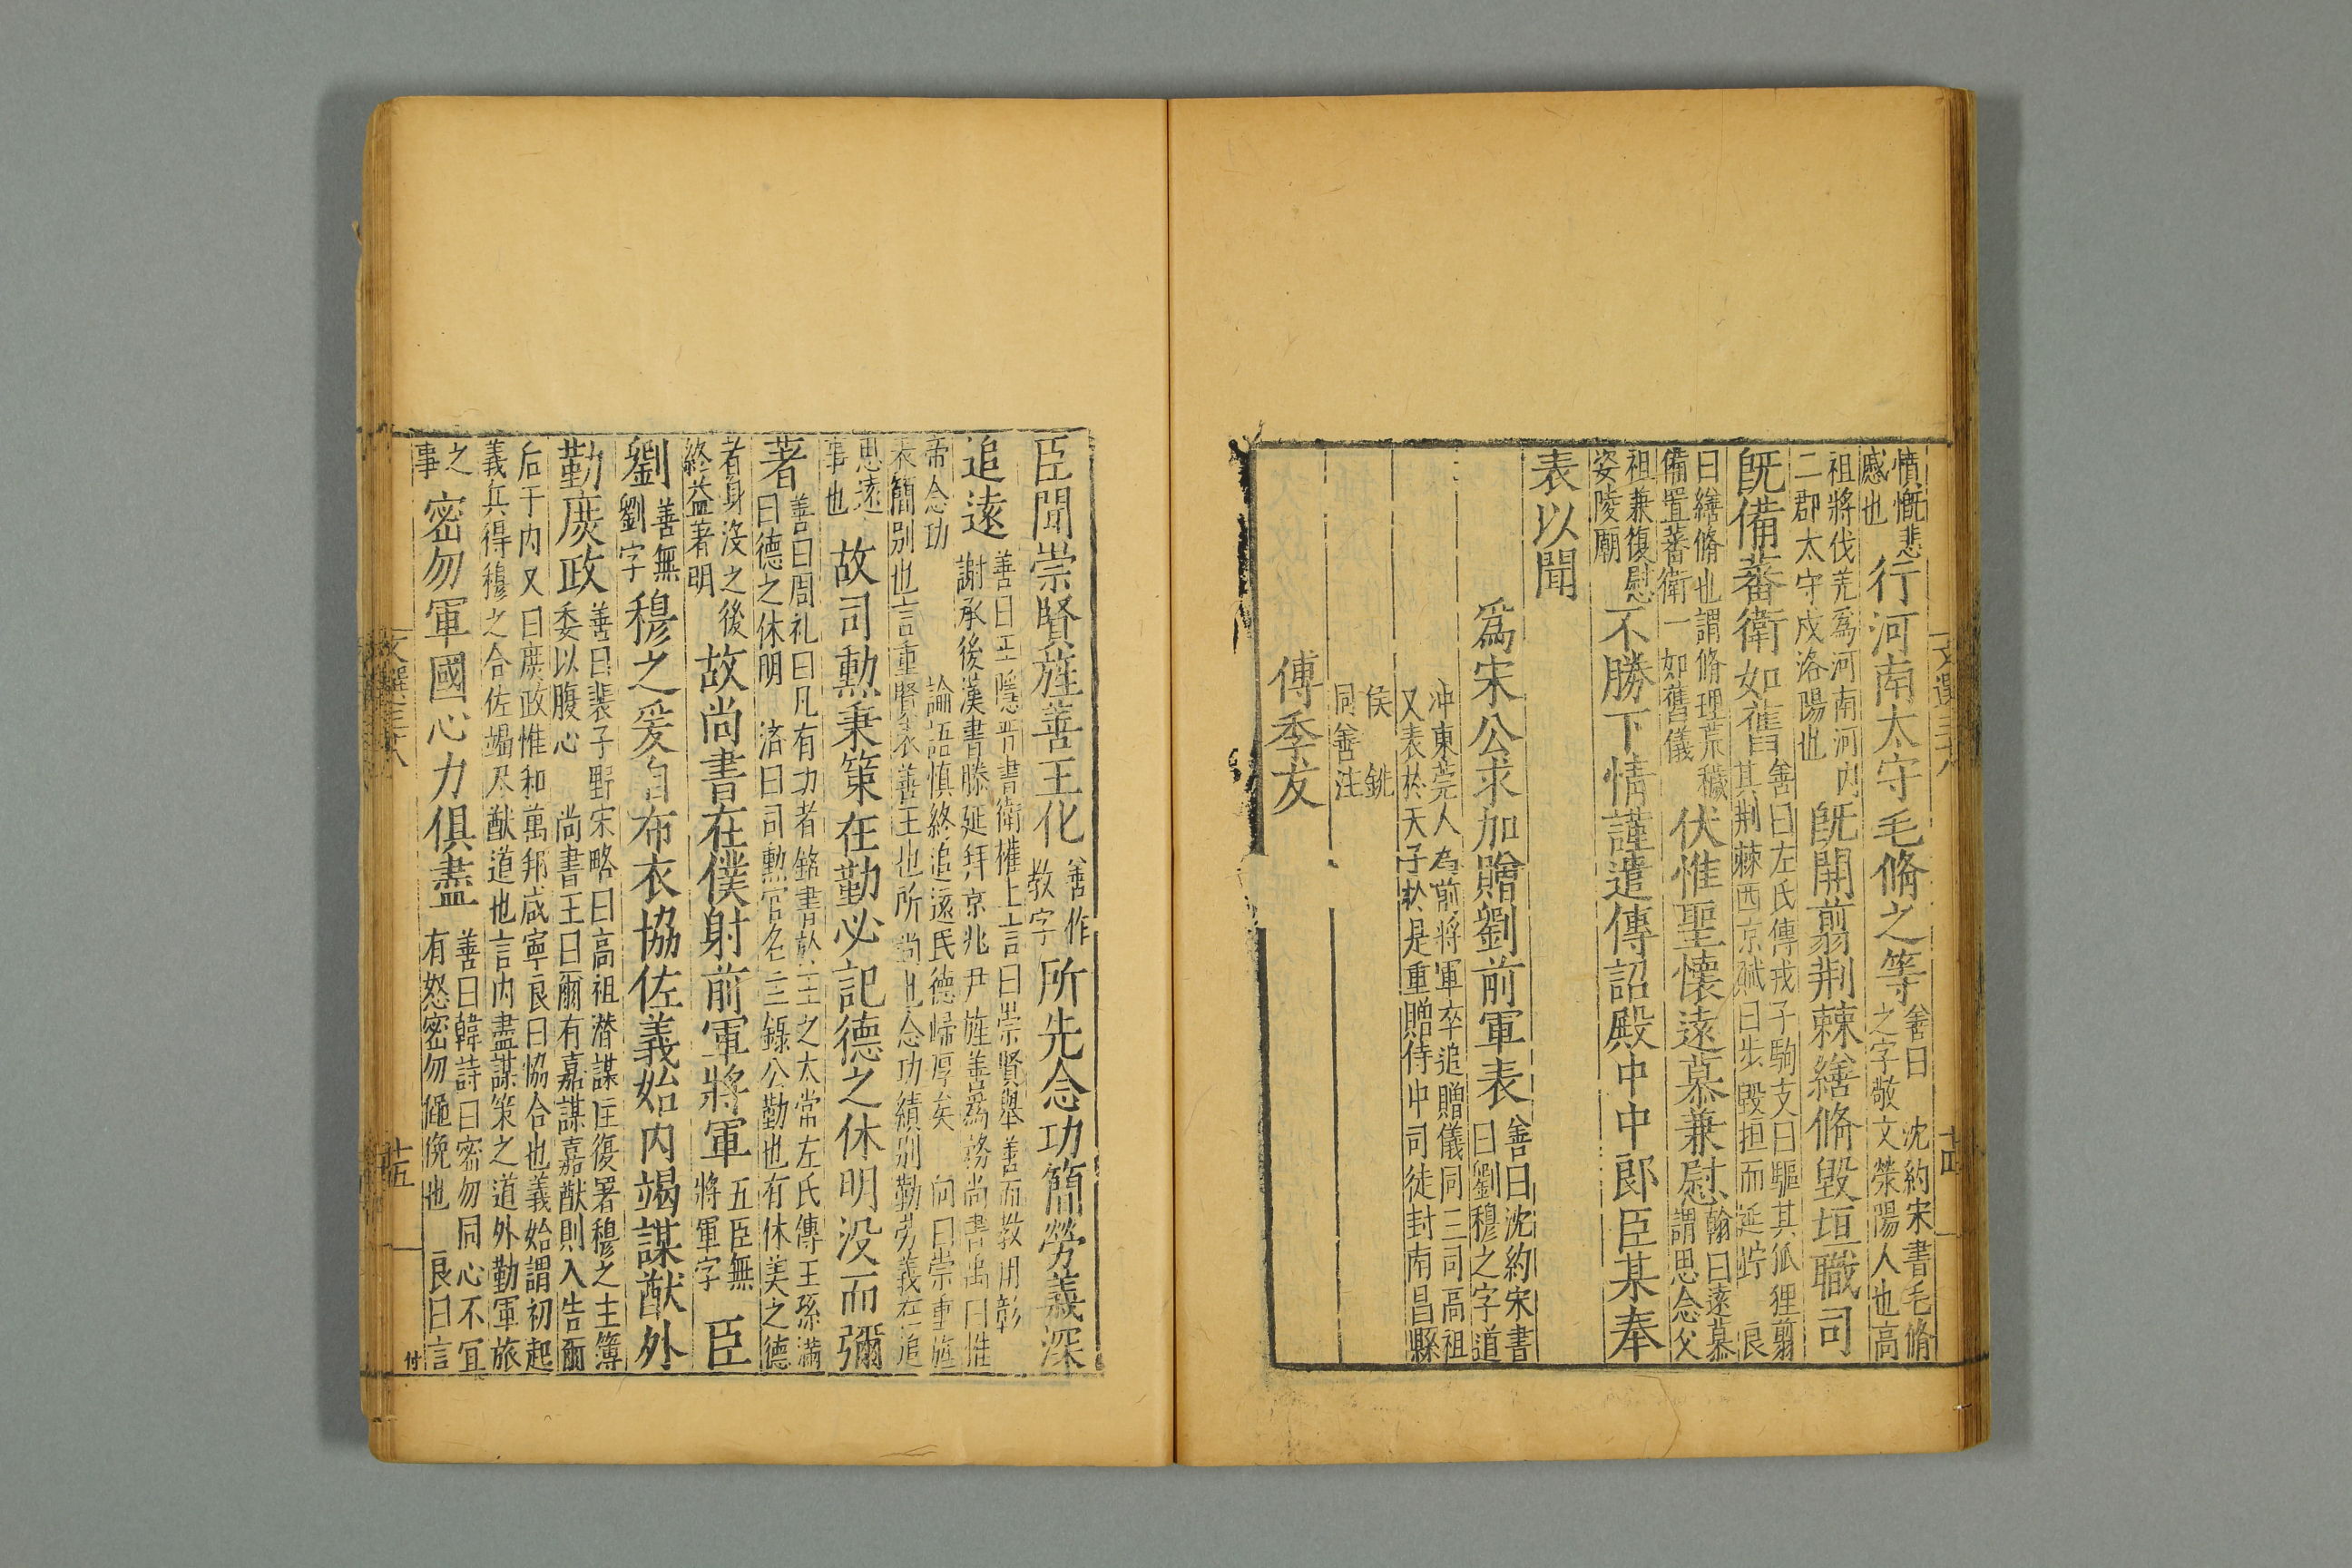 憤慨悲
感也
行河南太守毛脩之等
善曰沈約宋書毛脩
之字敬文滎陽人也高
祖將伐羌爲河南河內
二郡太守戍洛陽也
既開翦荆棘繕脩毀垣職司
既備蕃衛如舊
善曰左氏傳戎子駒支曰驅其狐狸翦
其荆棘西京賦曰步毀垣而延佇 良
曰繕脩也謂脩理荒穢
備置蕃衛一如舊儀
伏惟聖懷遠慕兼慰
翰曰遠慕
謂思念父
祖兼復慰
姿陵廟
不勝下情謹遣傳詔殿中中郎臣某奉
表以聞
爲宋公求加贈劉前軍表
善曰沈約宋書
曰劉穆之字道
冲東莞人為前將軍卒追贈儀同三司高祖
又表於天子於是重贈侍中司徒封南昌縣
侯 銑
同善注
傅季友
文選三十八
十四
臣聞崇賢旌善王化
善作
教字
所先念功簡勞義深
追遠
善曰王隱晋書衛權上言曰崇賢舉善而教用彰
謝承後漢書滕延拜京兆尹旌善爲務尚書禹曰惟
帝念功
論語慎終追遠民德歸厚矣 向曰崇重旌
表簡别也言重賢表善王化所尚也念功績别勤勞義在追
思遠
事也
故司勳秉策在勤必記德之休明没而彌
著
善曰周礼曰凡有功者銘書於王之太常左氏傳王孫滿
曰德之休明 济曰司勳官名主錄公勤也有休美之德
者身没之後
終益著明
故尚書左僕射前軍將軍
五臣無
將軍字
臣
劉
善無
劉字
穆之爰自布衣協佐義始内竭謀猷外
勤庶政
善曰裴子野宋略曰高祖潛謀匡復署穆之主簿
委以腹心 尚書王曰爾有嘉謀嘉猷則入告爾
后于内又曰庶政惟和萬邦咸寧良曰協合也義始謂初起
義兵得穆之合佐竭尽猷道也言内盡謀策之道外勤軍旅
之
事
密勿軍國心力俱盡
善曰韓詩曰密勿同心不宜
有怒密勿僶俛也 良曰言
付
文選三十八
十五